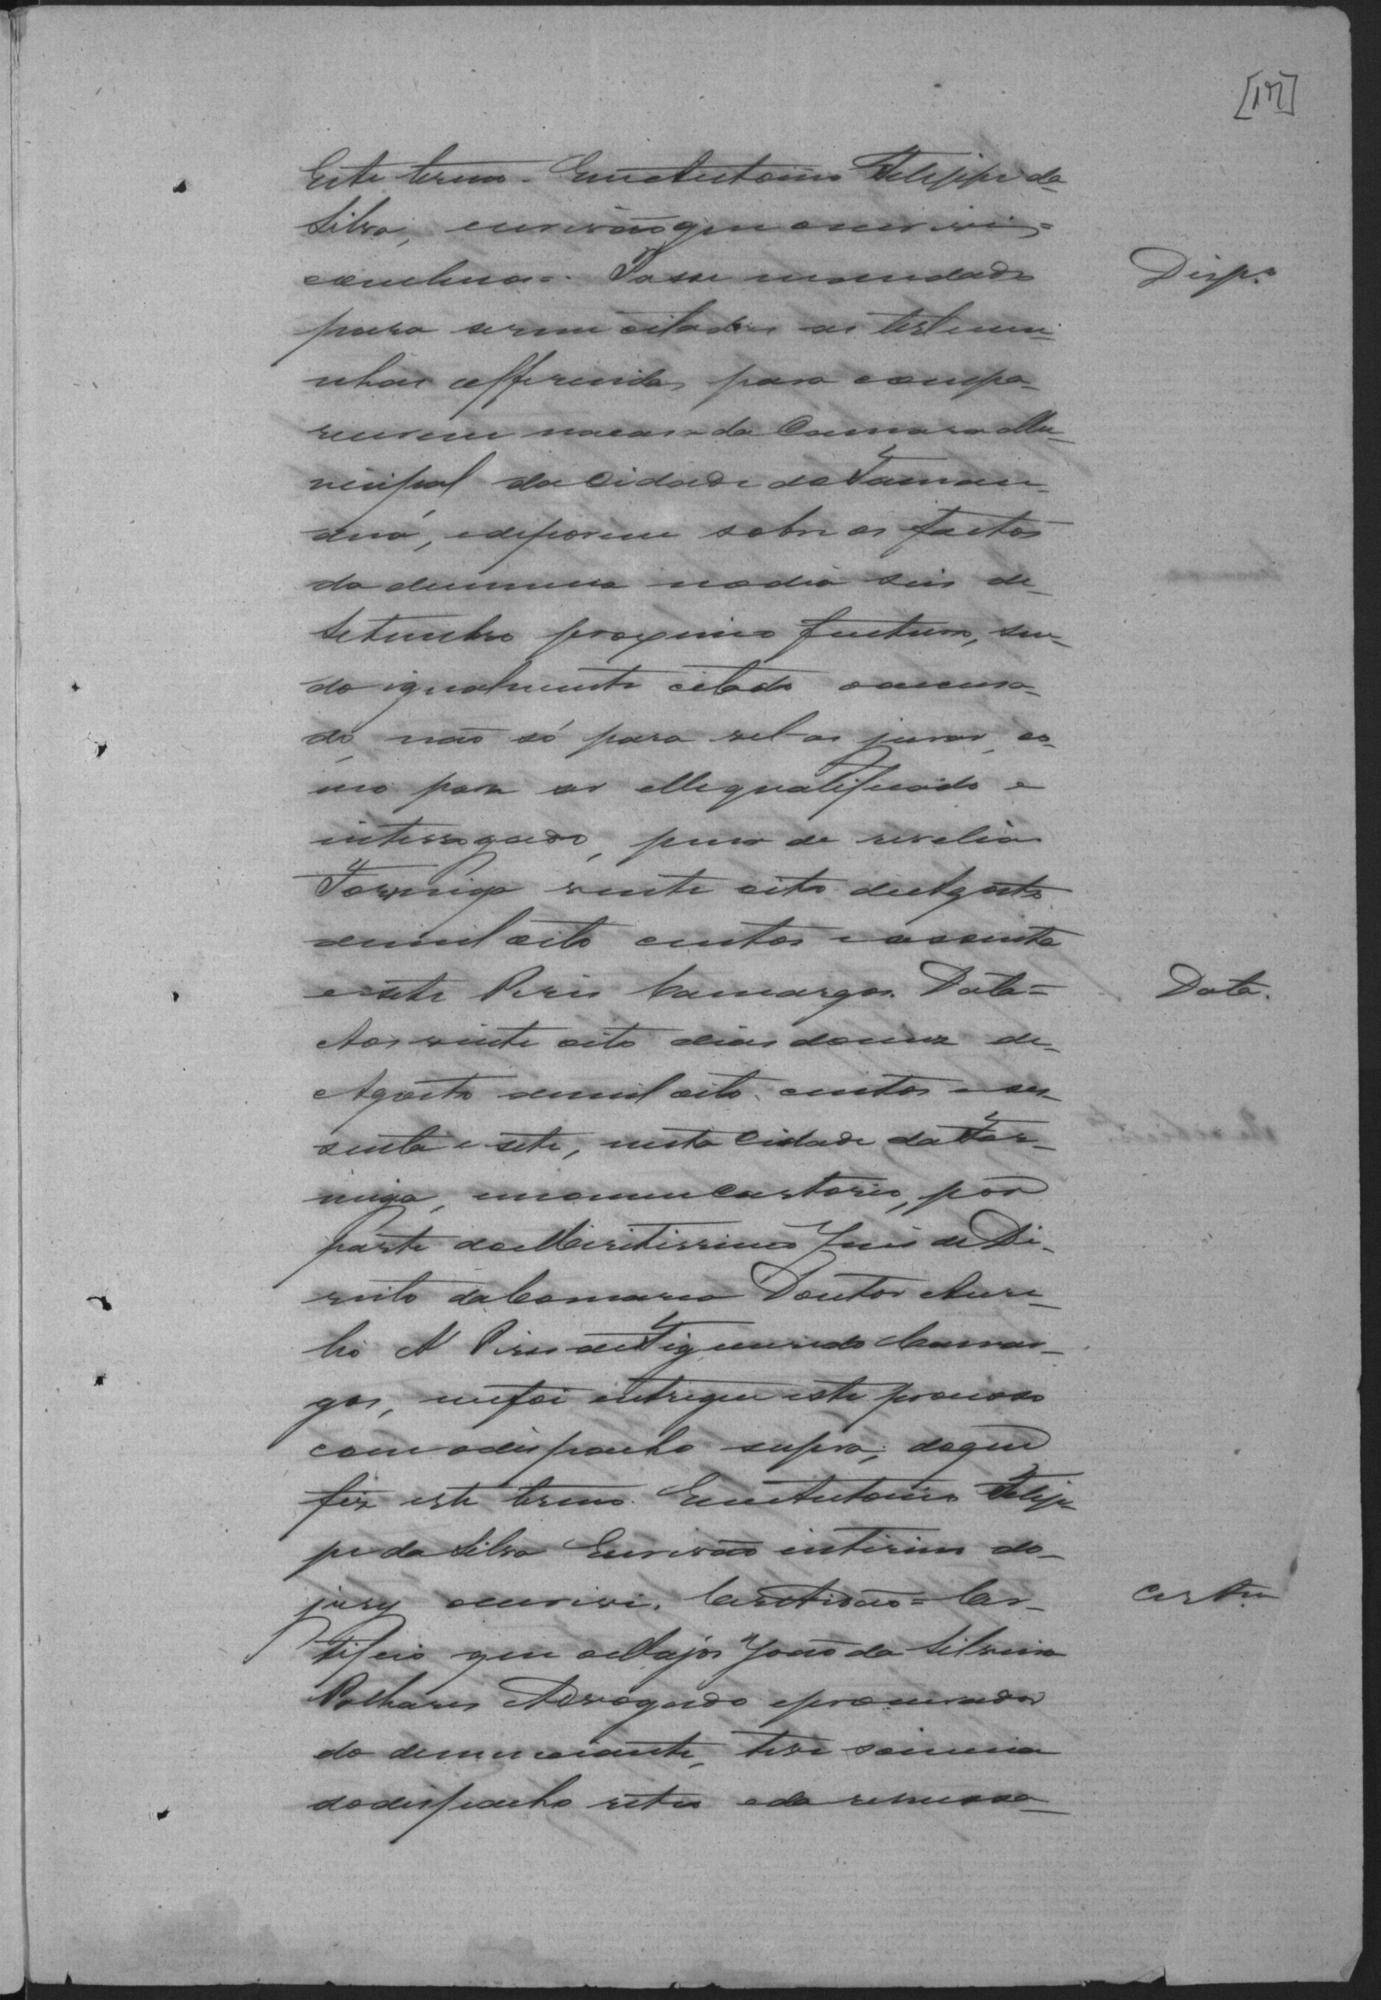 [17]
Este termo. Eu Antonio Felippe da
Silva, escrivão que o escrevi =
conclusos =. Passe mandado
Desp.o
para serem citadas as testemu-
nhas offerecidas para compa-
recerem na casa da Camara Mu-
nicipal da Cidade do Taman-
duá, e deporem sobre os factos
da denuncia no dia seis de
Setembro proximo futuro, sen-
do igualmente citado o accusa-
do, não só para vel as jurar, co-
mo para ser elle qualificado e
interrogado, pena de revelia
Formiga vinte oito de Agosto
de mil oito centos e sessenta
e sete Pires Camargos. Data =
Data.
Aos vinte oito dias do mez de
Agosto de mil oito centos e ses
senta e sete, nesta Cidade da For-
miga, em o meu Cartorio, por
parte do Meritissimo Juis de Di-
reito da Comarca Doutor Aure-
lio A Pires de Figueiredo Camar-
gos, me foi entregue este processo
com o despacho supra; do que
fiz este termo. Eu Antonio Felip
pe da Silva Escrivão interino do
jury o escrevi. Certidão = Cer-
Certam
tifico que o Major João da Silveira
Palhares Advogado e procurador
do denunciante, teve sciencia
do despacho retro e da remessa